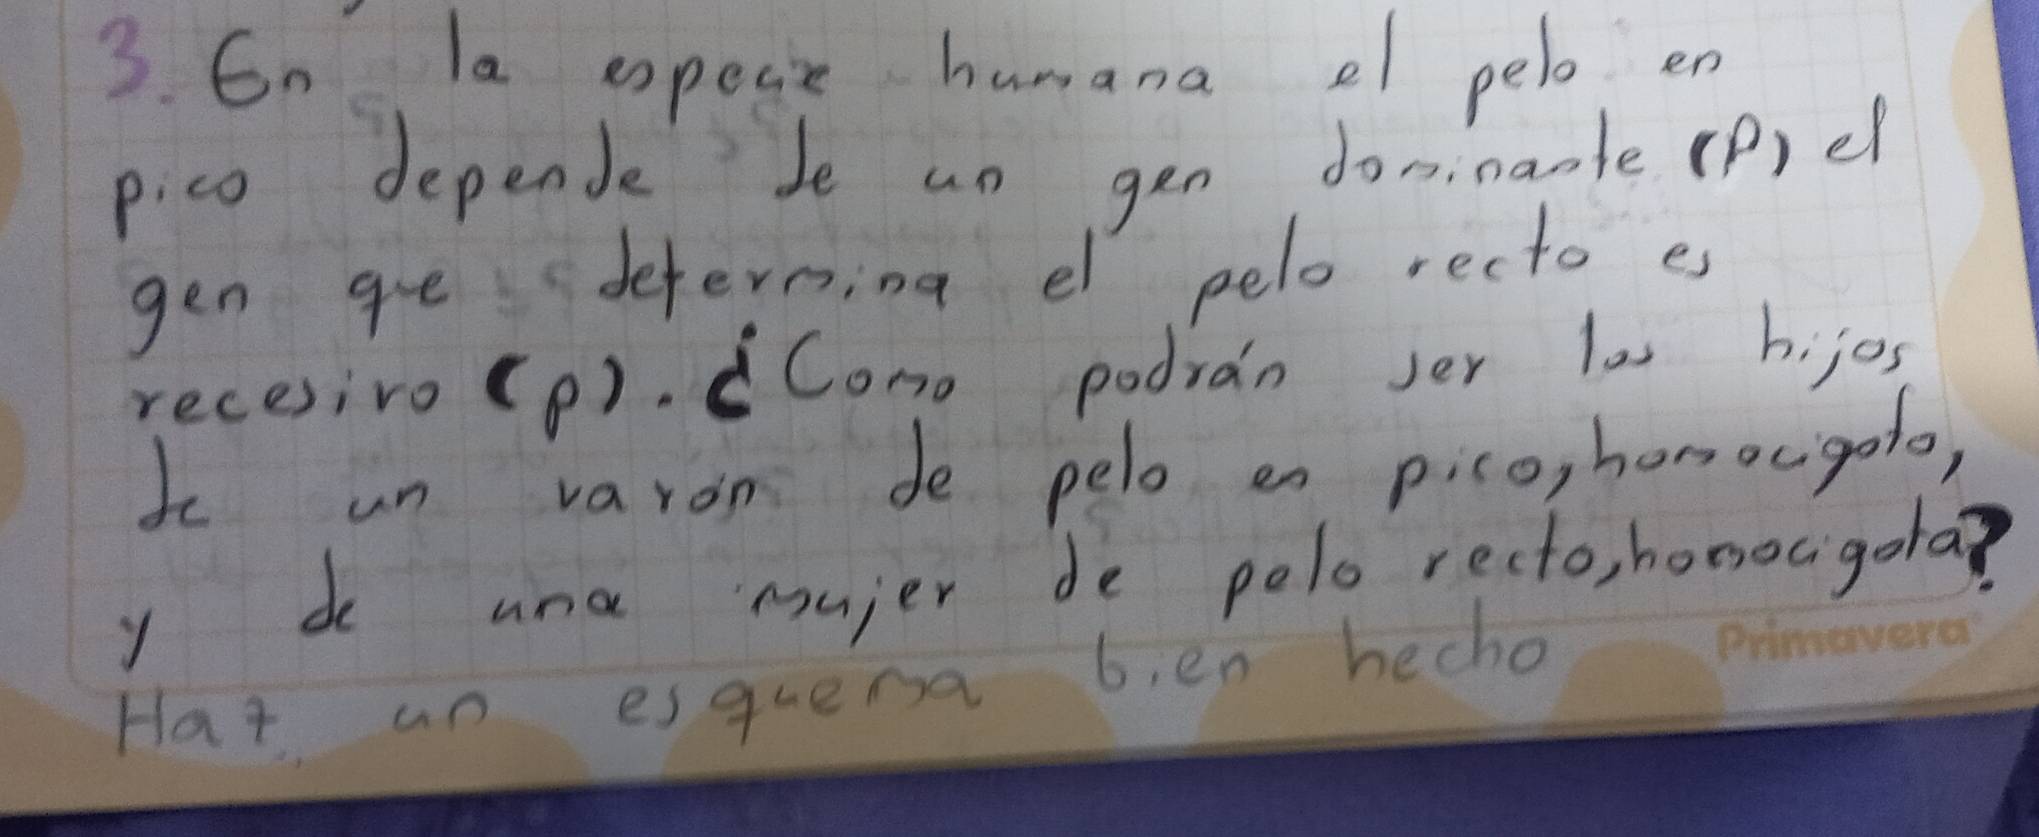 3. En la especie humana el pelo en
pico depende de un gen dominante (P) el
gen que determina el pelo recto es
recesivo (p). ¿Como podrán ser los hijos
de un varón de pelo en pico, homocigoto,
y de una mujer de pelo recto, homocigota?
Primavera
Haz un esquema bien hecho